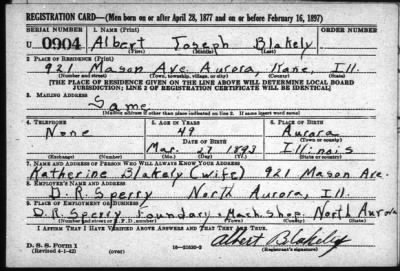 REGISTRATION CARD—(Men born on or after April 28, 1877 and on or before February 16, 1897)
SERIAL NUMBER 1. NAME (Print) ORDER NUMBER
U 0904 Albert Joseph Blakely
(First) (Middle) (Last)
2. PLACE OF RESIDENCE (Print)
921 Mason Ave. Aurora, Kane, Ill.
(Number and street) (Town, township, village, or city) (County) (State)
[THE PLACE OF RESIDENCE GIVEN ON THE LINE ABOVE WILL DETERMINE LOCAL BOARD
JURISDICTION; LINE 2 OF REGISTRATION CERTIFICATE WILL BE IDENTICAL]
3. MAILING ADDRESS
Same
[Mailing address if other than place indicated on line 2. If same insert word same]
4. TELEPHONE 5. AGE IN YEARS 6. PLACE OF BIRTH
None 49 Aurora
DATE OF BIRTH (Town or county)
Mar. 27 1893 Illinois
(Exchange) (Number) (Mo.) (Day) (Yr.) (State or country)
7. NAME AND ADDRESS OF PERSON WHO WILL ALWAYS KNOW YOUR ADDRESS
Katherine Blakely (wife) 921 Mason Ave.
8. EMPLOYER'S NAME AND ADDRESS
D. R. Sperry North Aurora, Ill.
9. PLACE OF EMPLOYMENT OR BUSINESS
D. R. Sperry, Foundary + Mach. Shop. North Aurora
(Number and street or R. F. D. number) (Town) (County) (State)
I AFFIRM THAT I HAVE VERIFIED ABOVE ANSWERS AND THAT THEY ARE TRUE.
Albert Blakely
D. S. S. Form 1
(Revised 4-1-42) (over) 16—21630-2 (Registrant's signature)